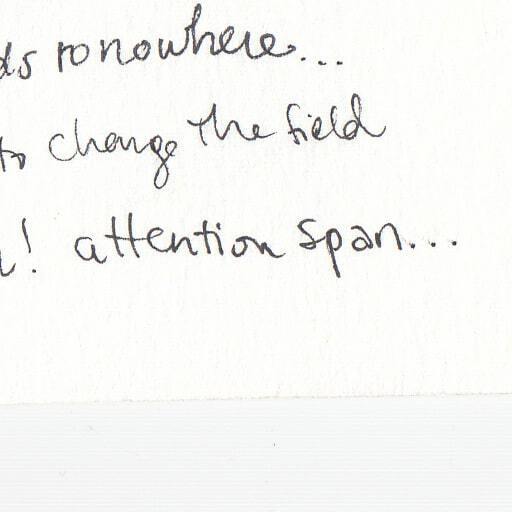 ds to nowhere...
to change the field
! attention span...